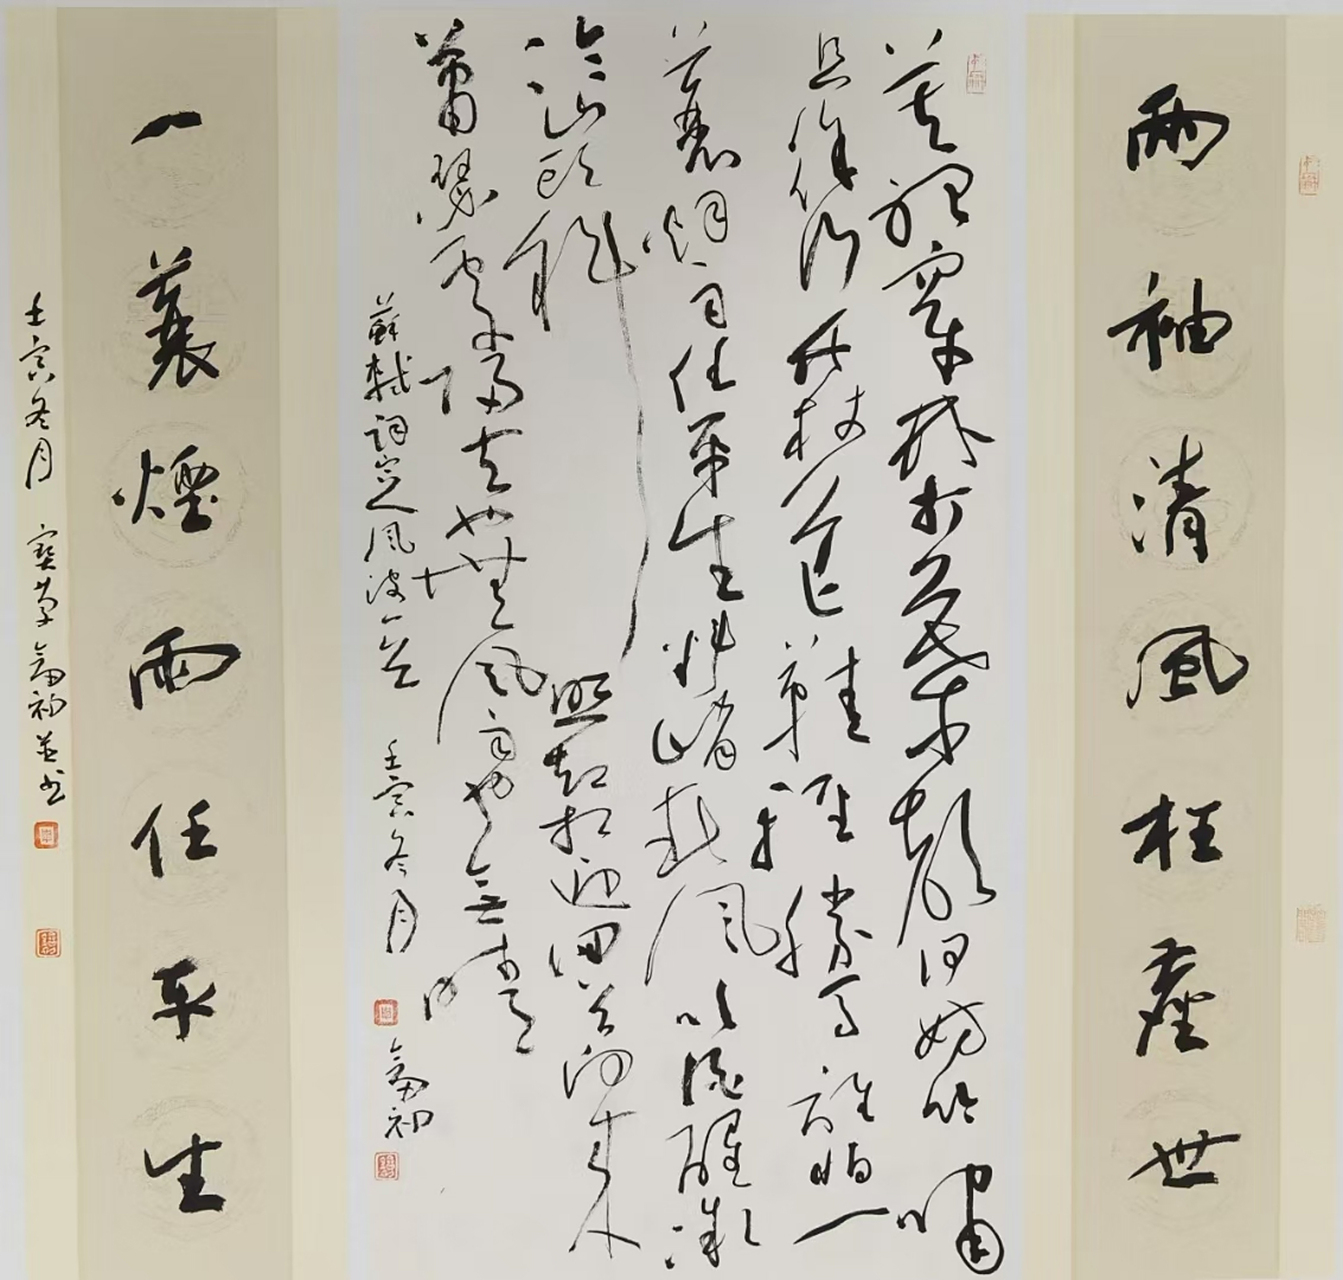 兩袖清風枉塵世
莫聽穿林打葉聲何妨吟嘯
且徐行竹杖芒鞋輕勝馬誰怕一
蓑烟雨任平生料峭春風吹酒醒微
冷山頭斜照却相迎回首向來
蕭瑟處歸去也無風雨也無晴
蘇軾詞定風波一首 壬寅冬月 初
一蓑煙雨任平生
壬寅冬月 初並書